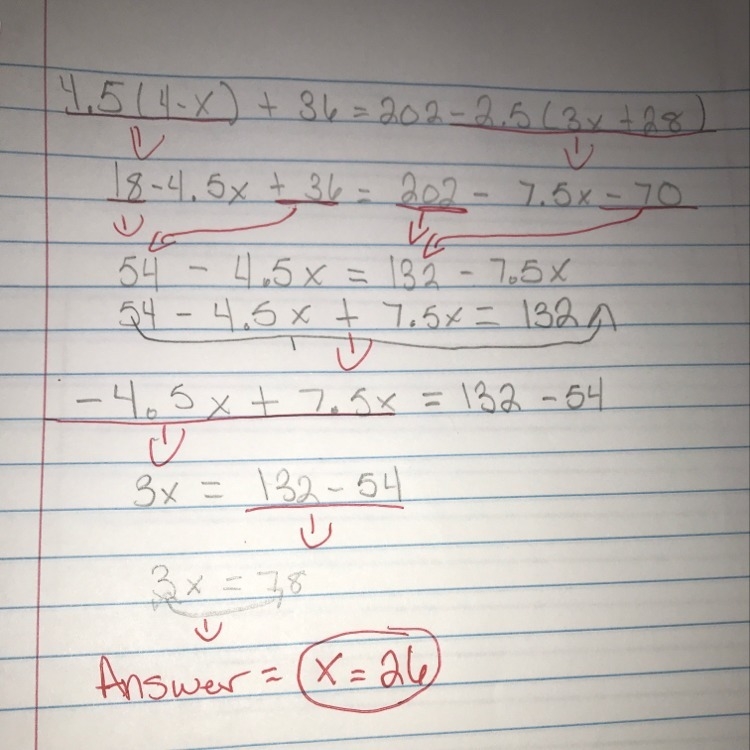 4.5(4-x) + 36 = 202 - 2.5(3x + 28)
18 - 4.5x + 36 = 202 - 7.5x - 70
54 - 4.5x = 132 - 7.5x
54 - 4.5x + 7.5x = 132
-4.5x + 7.5x = 132 - 54
3x = 132 - 54
3x = 78
Answer = x = 26